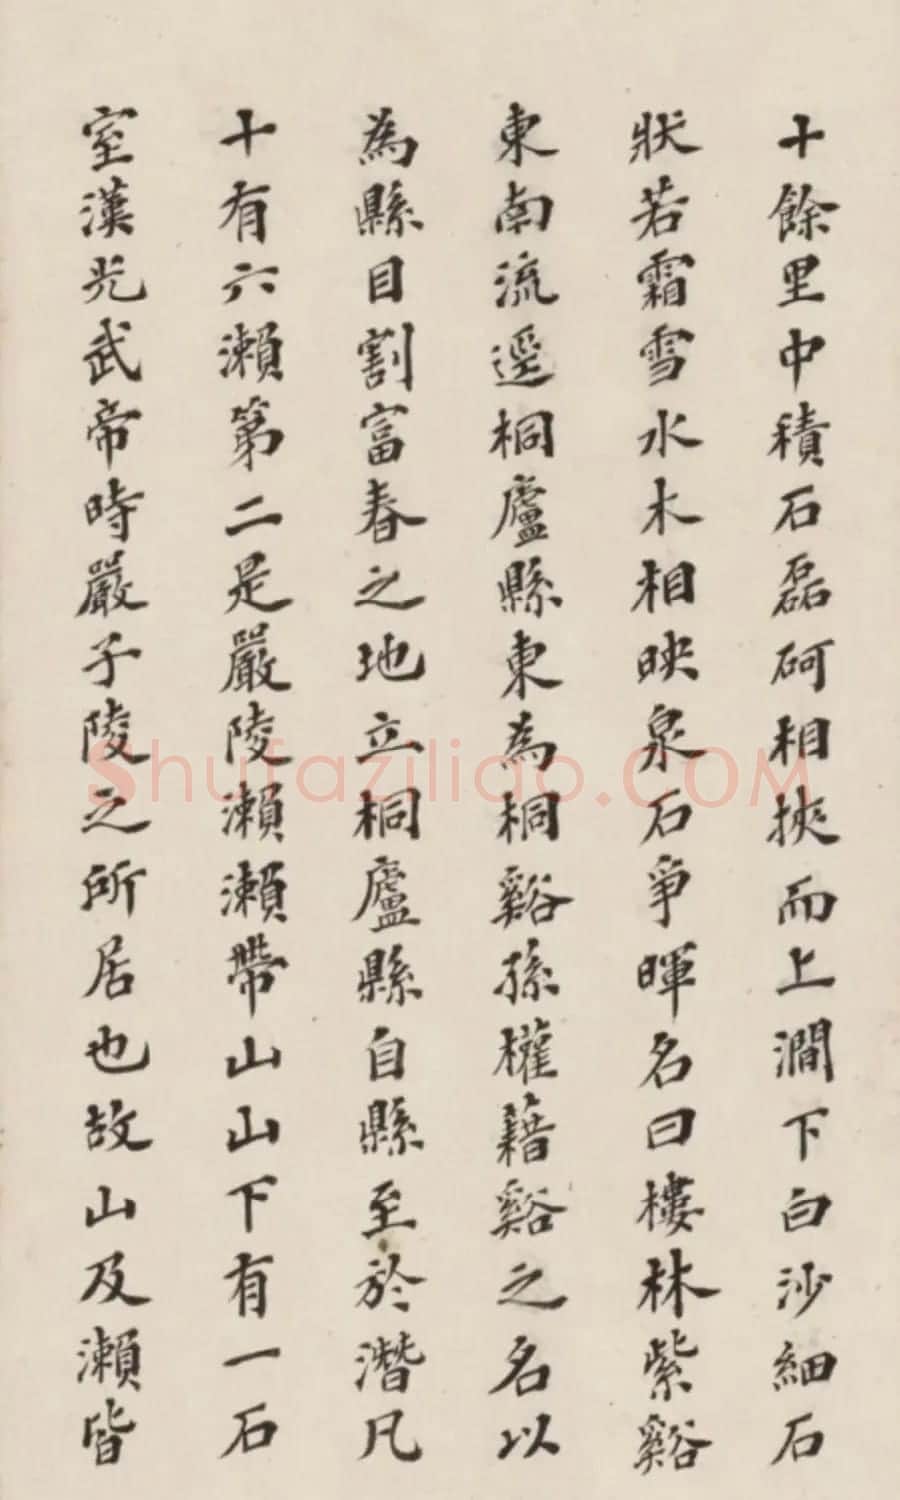 十餘里中積石磊砢相挾而上澗下白沙細石
狀若霜雪水木相映泉石爭暉名曰樓林紫谿
東南流逕桐廬縣東為桐谿孫權藉谿之名以
為縣目割富春之地立桐廬縣自縣至於潛凡
十有六瀨第二是嚴陵瀨瀨帶山山下有一石
室漢光武帝時嚴子陵之所居也故山及瀨皆
Shufaziliao.COM